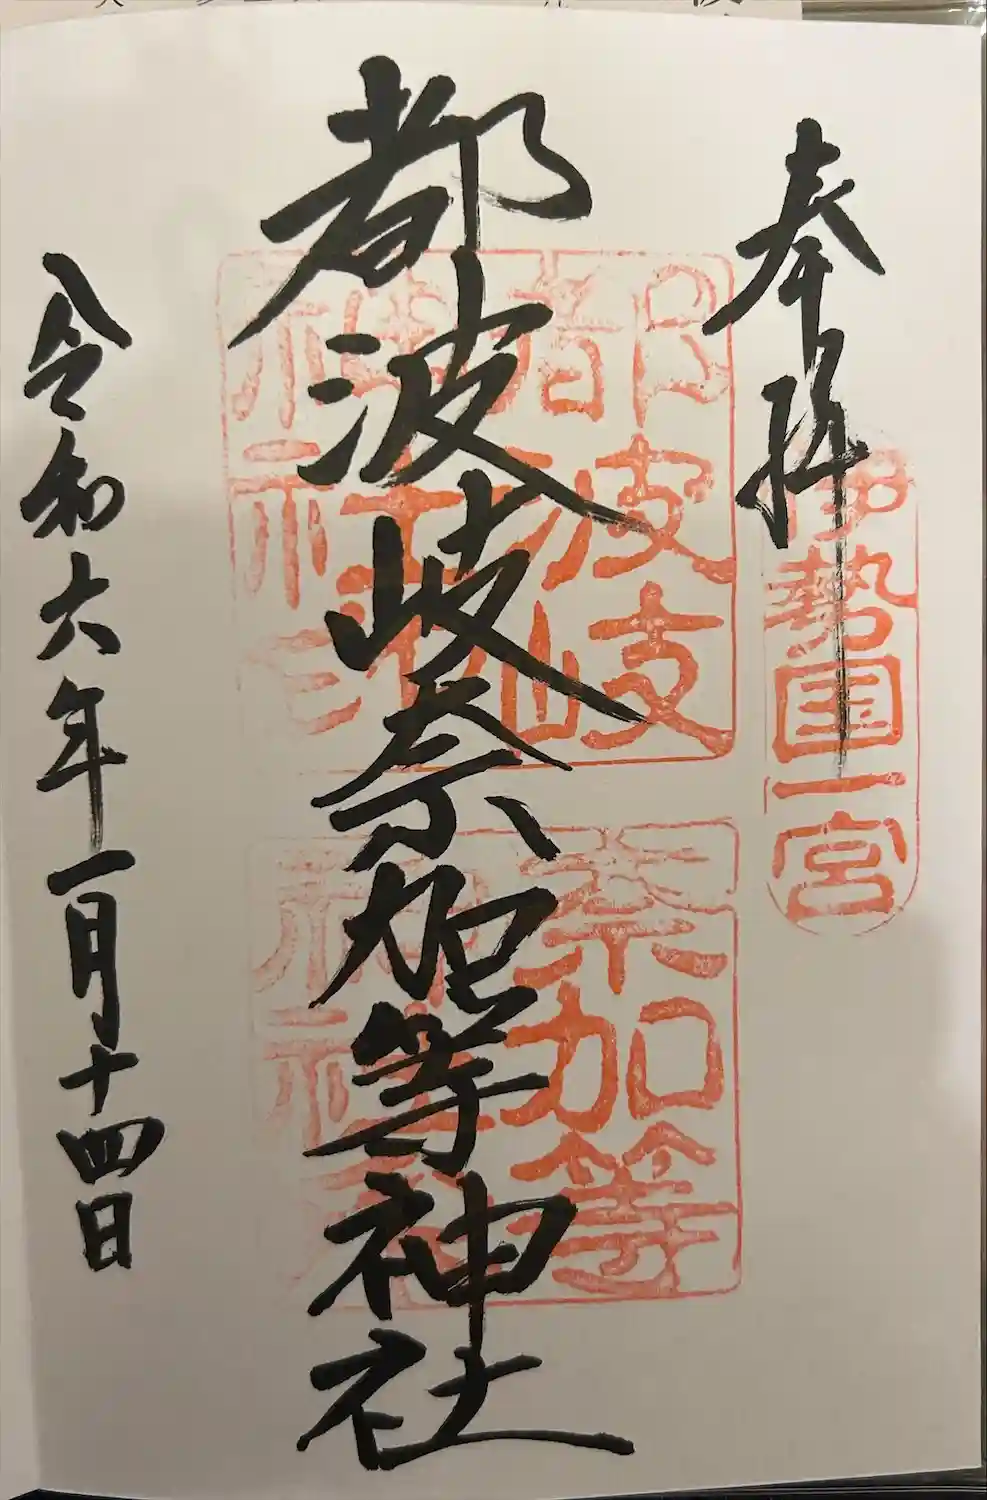 奉拝
伊勢国一宮
都波岐奈加等神社
都波岐
神社
奈加等
神社
令和六年一月十四日